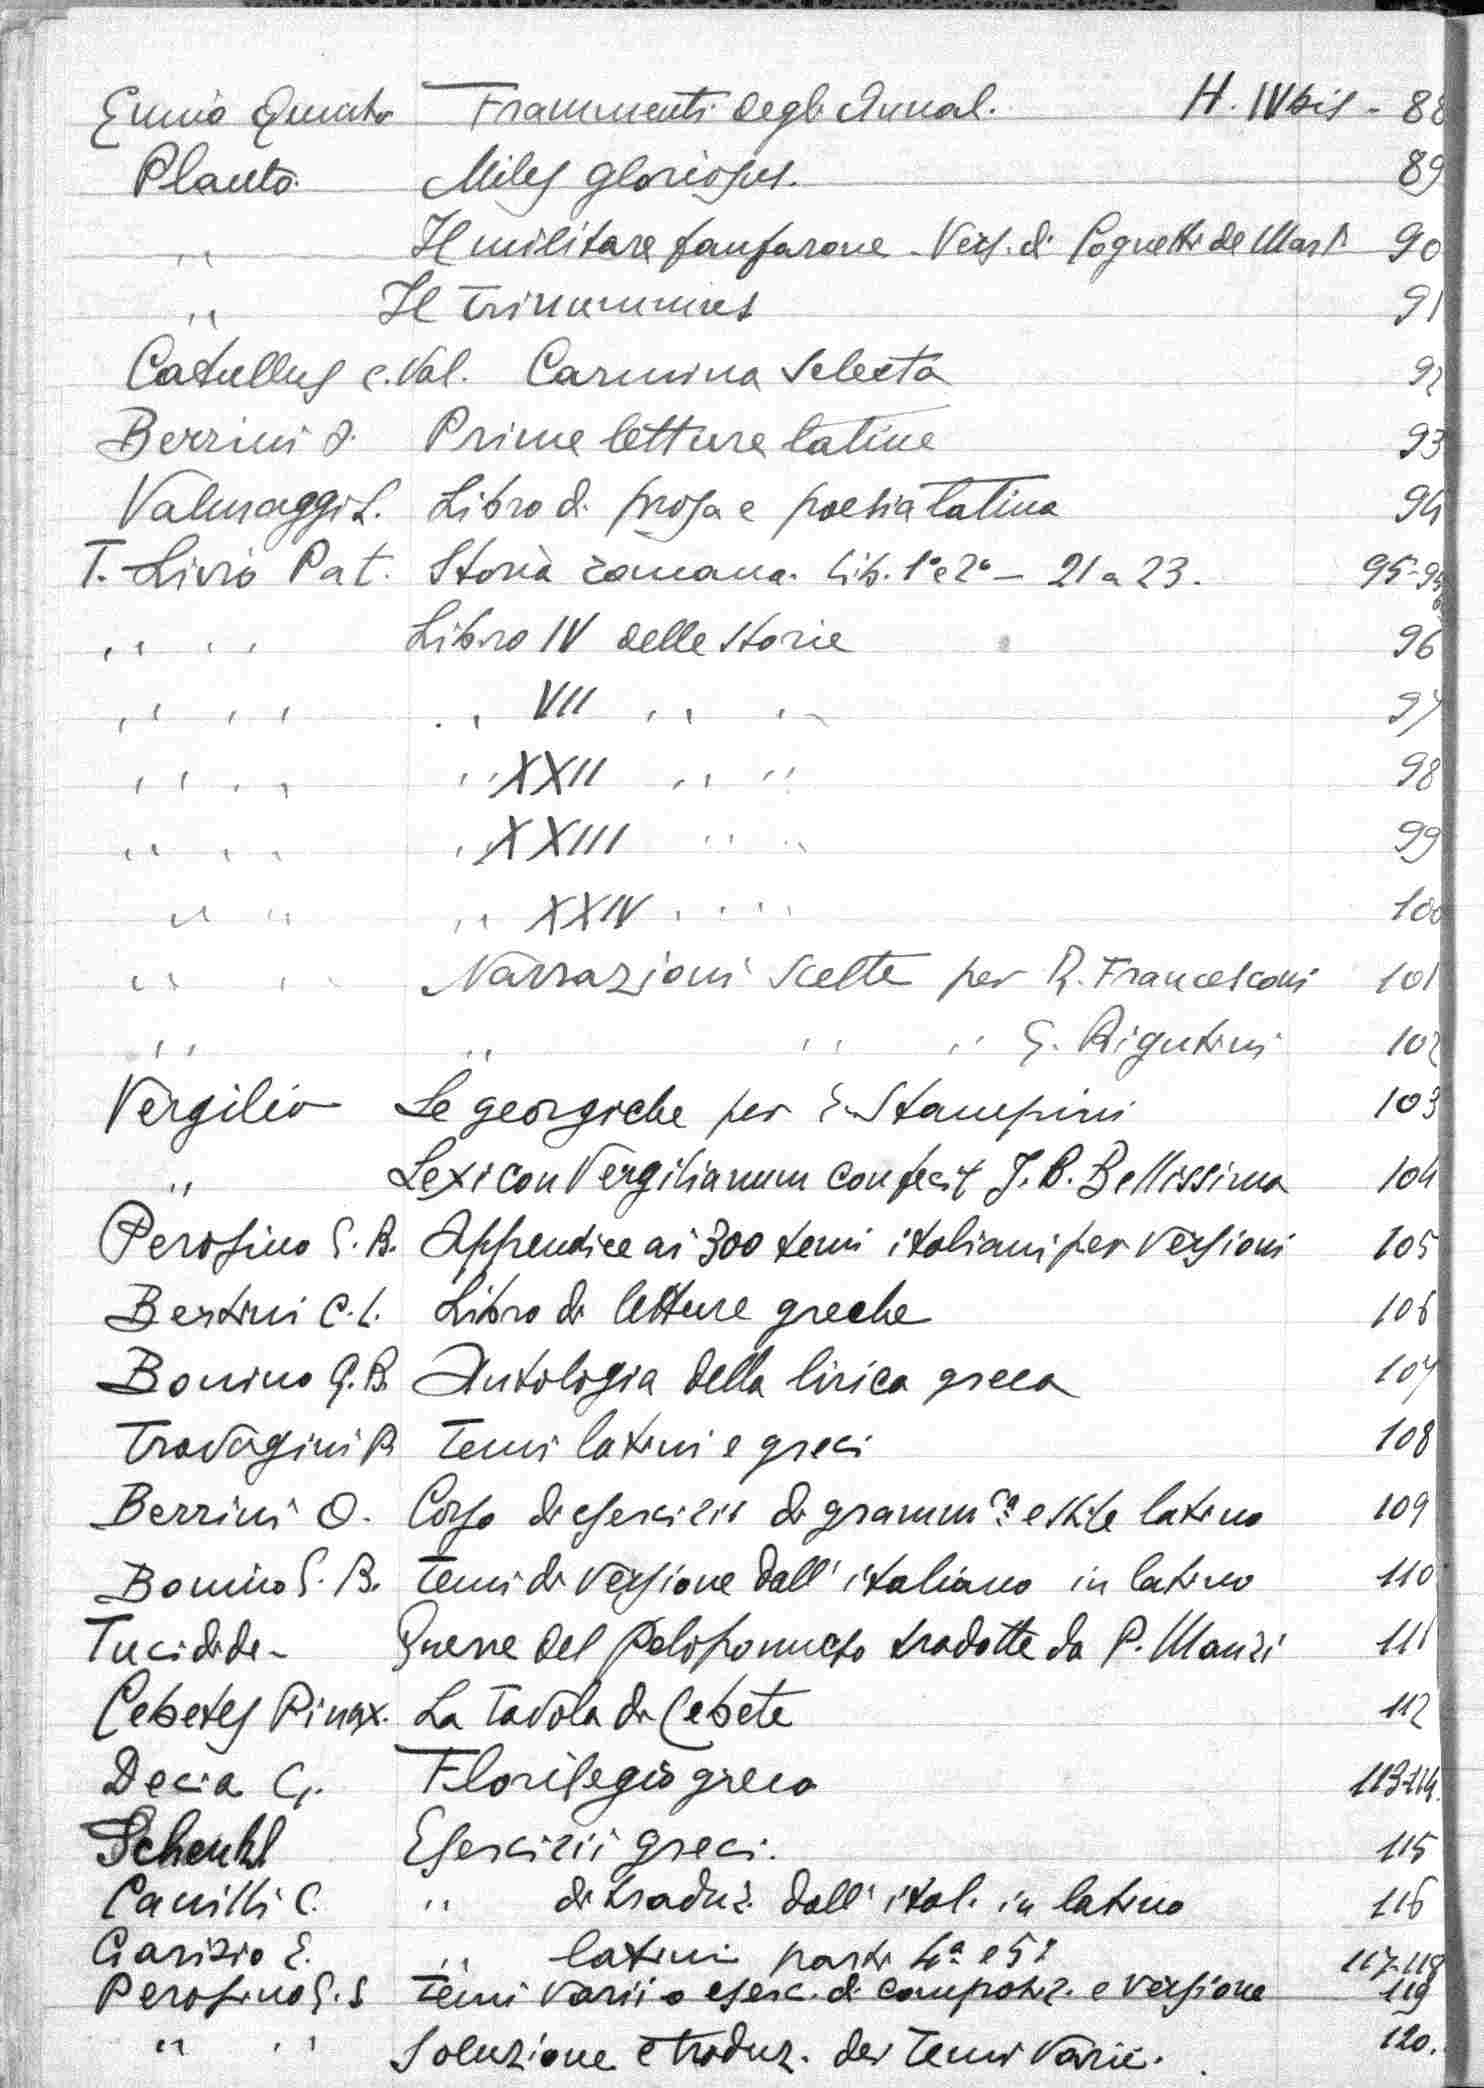 Ennio Quinto Frammenti degli Annal. H. IV bis - 88
Plauto Miles gloriosus. 89
,, Il militare fanfarone - Vers. di Cognetti de Mart. 90
,, Il Trinummus 91
Catullus C. Val. Carmina selecta 92
Berrini O. Prime letture latine 93
Valmaggi L. Libro di prosa e poesia latina 94
T. Livio Pat. Storia romana. Lib. 1° e 2° - 21 a 23. 95-95
,, ,, Libro IV delle storie 96
,, ,, ,, VII ,, ,, 97
,, ,, ,, XXII ,, ,, 98
,, ,, ,, XXIII ,, ,, 99
,, ,, ,, XXIV ,, ,, 100
,, ,, Narrazioni scelte per R. Francesconi 101
,, ,, ,, ,, G. Rigutini 102
Vergilio Le georgiche per E. Stampini 103
,, Lexicon Vergilianum confecit J. B. Bellissima 104
Perosino G. B. Appendice ai 300 temi italiani per versioni 105
Bertini C. L. Libro di letture greche 106
Bonino G. B. Antologia della lirica greca 107
Travagini R. Temi latini e greci 108
Berrini O. Corso di esercizii di gramm.ca e stile latino 109
Bonino G. B. Temi di versione dall' italiano in latino 110
Tucidide - Guerre del Peloponneso tradotte da P. Manzi 111
Cebetes Pinax. La Tavola di Cebete 112
Decia G. Florilegio greco 113-114.
Schenkl Esercizii greci. 115
Canilli C. ,, di traduz. dall' ital. in latino 116
Garizio E. ,, latini parti 4ª e 5ª 117-118
Perosino G. S. Temi varii o eserc. di composiz. e versione 119
,, ,, Soluzione e traduz. dei Temi varii. 120.